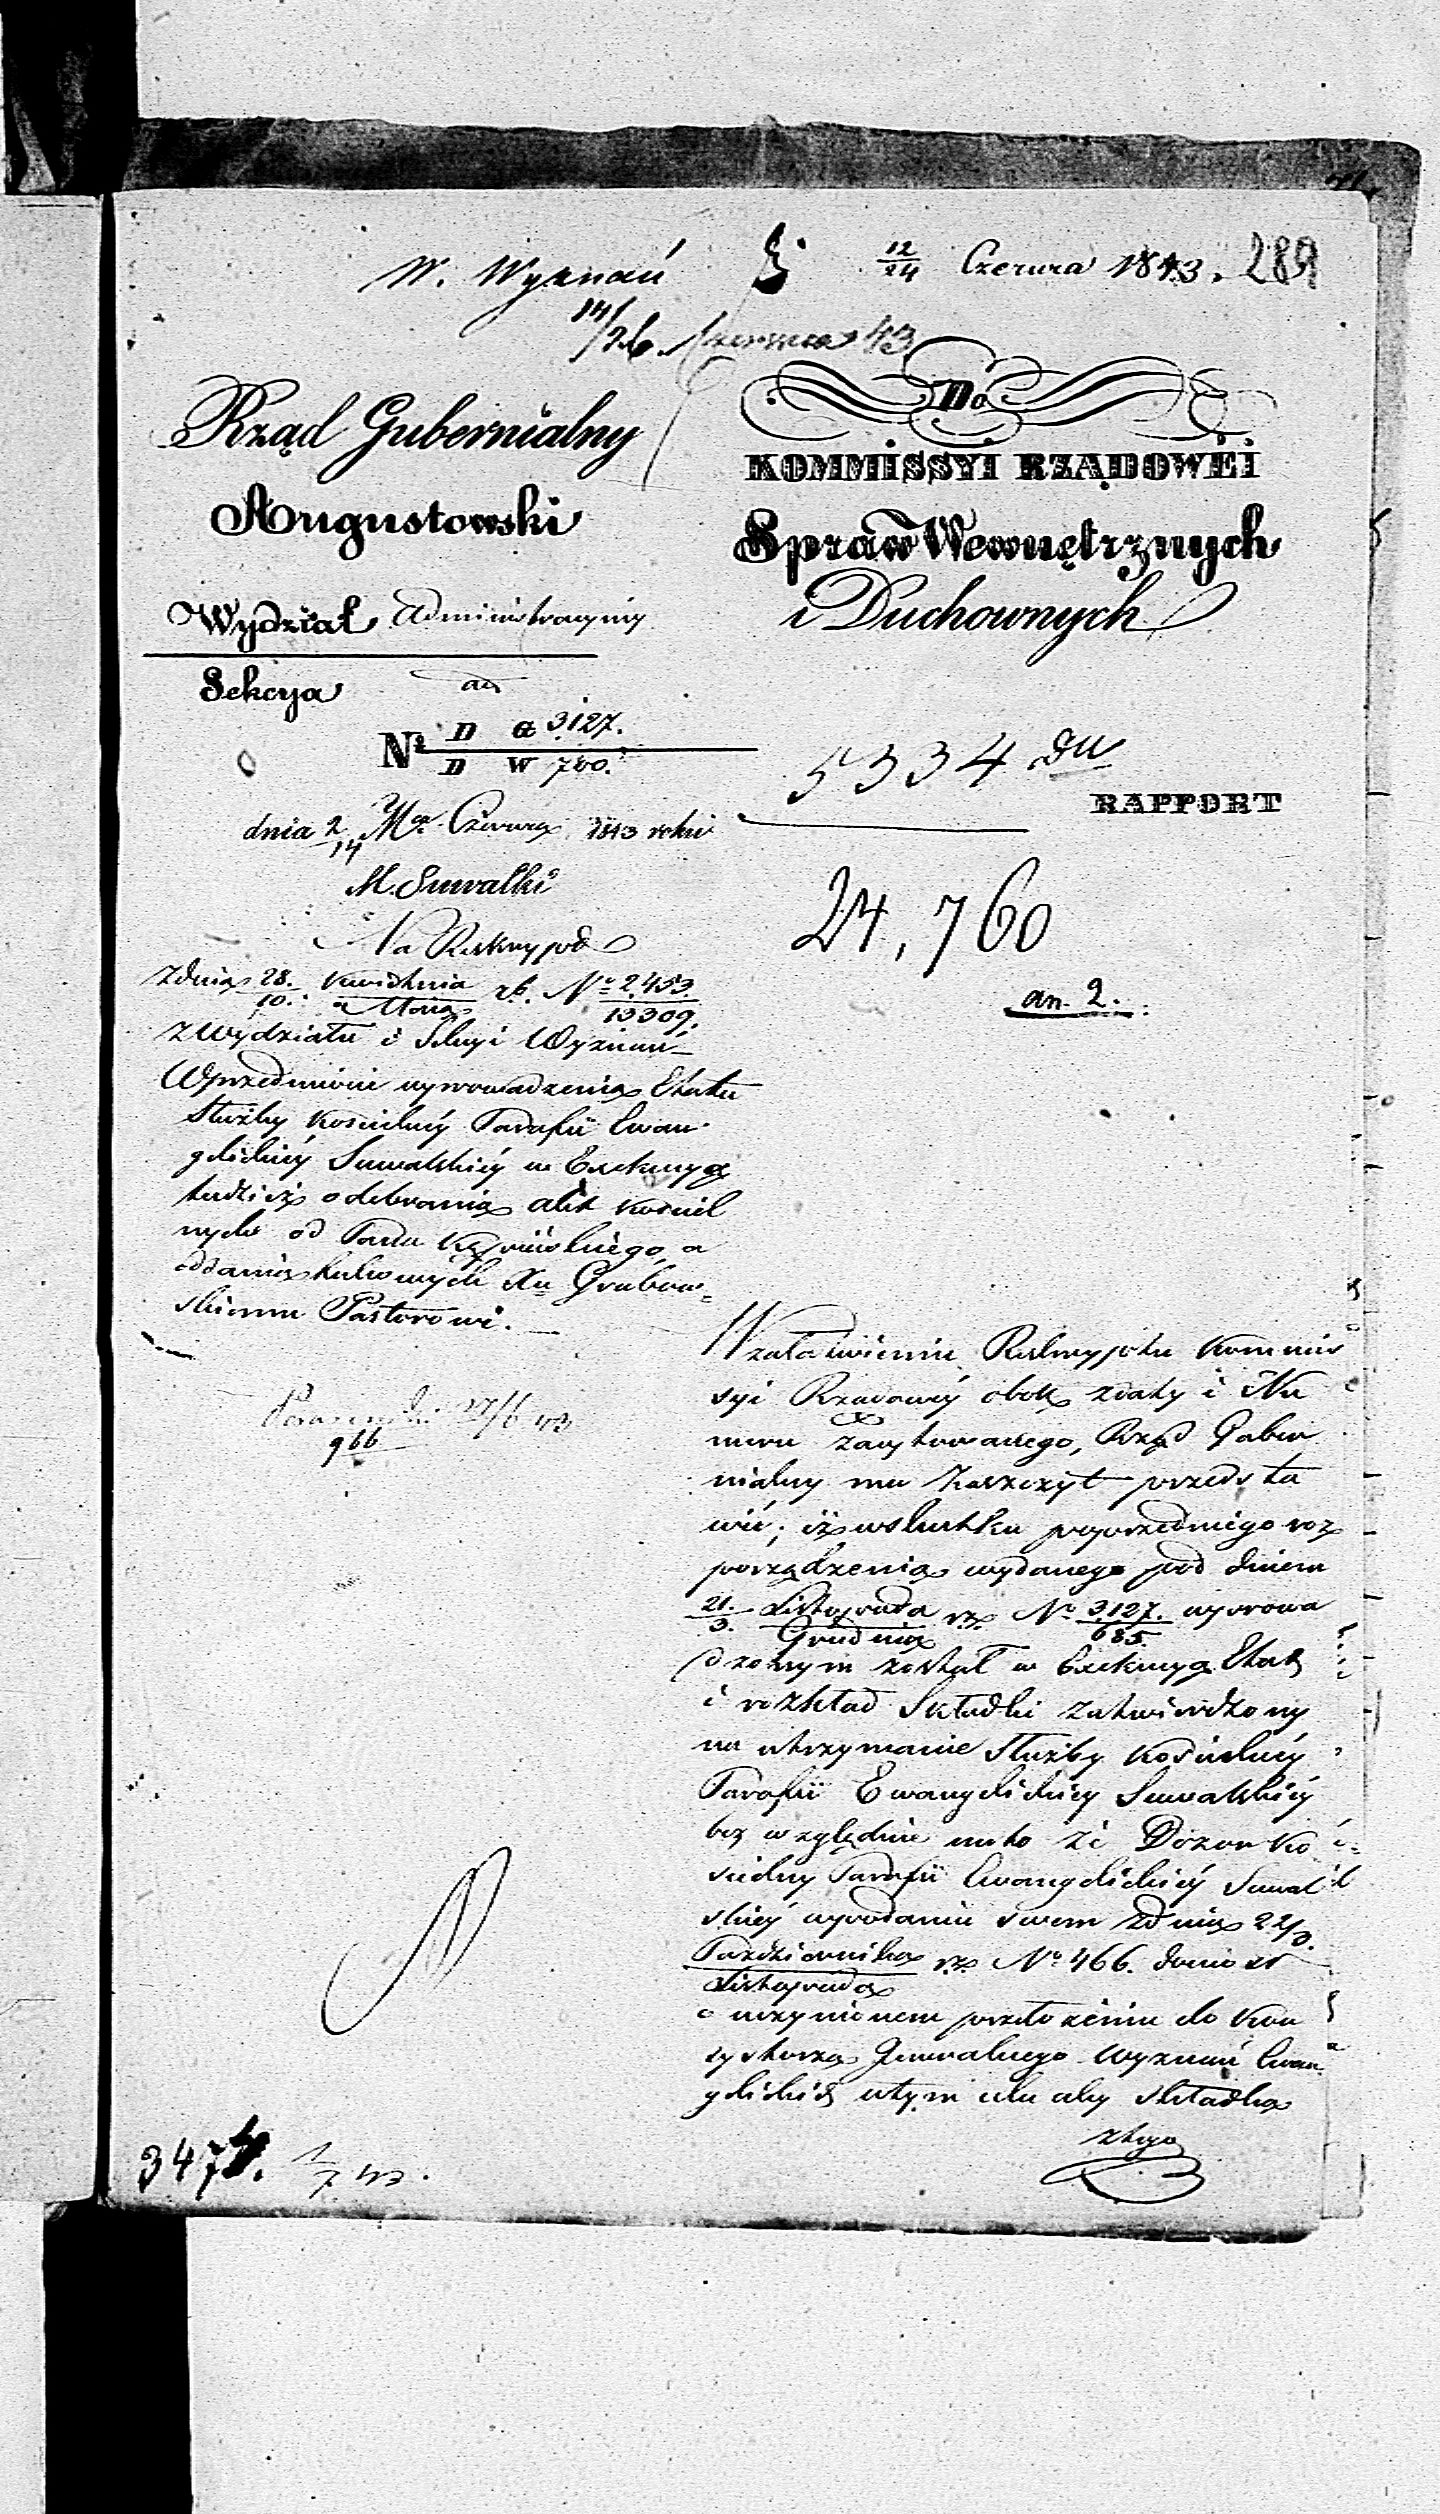 W. Wyznań
12/24 Czerwca 1843. 289
14/26 Czerwca 43
Rząd Gubernialny
Augustowski
Wydział Administracyiny
Sekcya
ad
N° D G 3127.
D W 760.
dnia 2/14 Mca Czerwca 1843 roku
M. Suwałki
Na Reskrypt
z dnia 28. Kwietnia / 10. Maia rb. No 2,453. / 13309.
z Wydziału i Sekcyi Wyznań
W przedmiocie wyprowadzenia Etatu
służby kościelnéy Parafii Ewan-
gelickiéy Suwalskiéy w Exekucyą
tudzież odebrania akt kościel
nych od Pana Kępińskiego, a
oddania takowych Xu Grabow=
skiemu Pastorowi.
27/6 43
966
3474. 1/7 43.
Do
KOMMISSYI RZĄDOWÉI
Spraw Wewnętrznych
i Duchownych
5334
RAPPORT
24,760
an. 2.
W załatwieniu Reskryptu Kommis
syi Rządowéy obok z daty i Nu
meru zacytowanego, Rząd Guber
nialny ma zaszczyt przedsta
wić, iż w skutku poprzedniego roz
porządzenia wydanego pod dniem
21. Listopada / 3. Grudnia rz. No 3127. / 685. wyprowa
dzonym został w Exekucyą Etat
i rozkład Składki zatwierdzony
na utrzymanie Służby Kościelnéy
Parafii Ewangelickiéy Suwalskiéy
bez względnie na to że Dozor Ko
ścielny Parafii Ewangelickiéy Suwal
skiéy w podaniu swem z dnia 22/3.
Października / Listopada rz. No 466. doniosł
o uczynionem przełożeniu do Kon
systorza Generalnego Wyznań Ewan
gelickich w tym celu aby składka
z tego